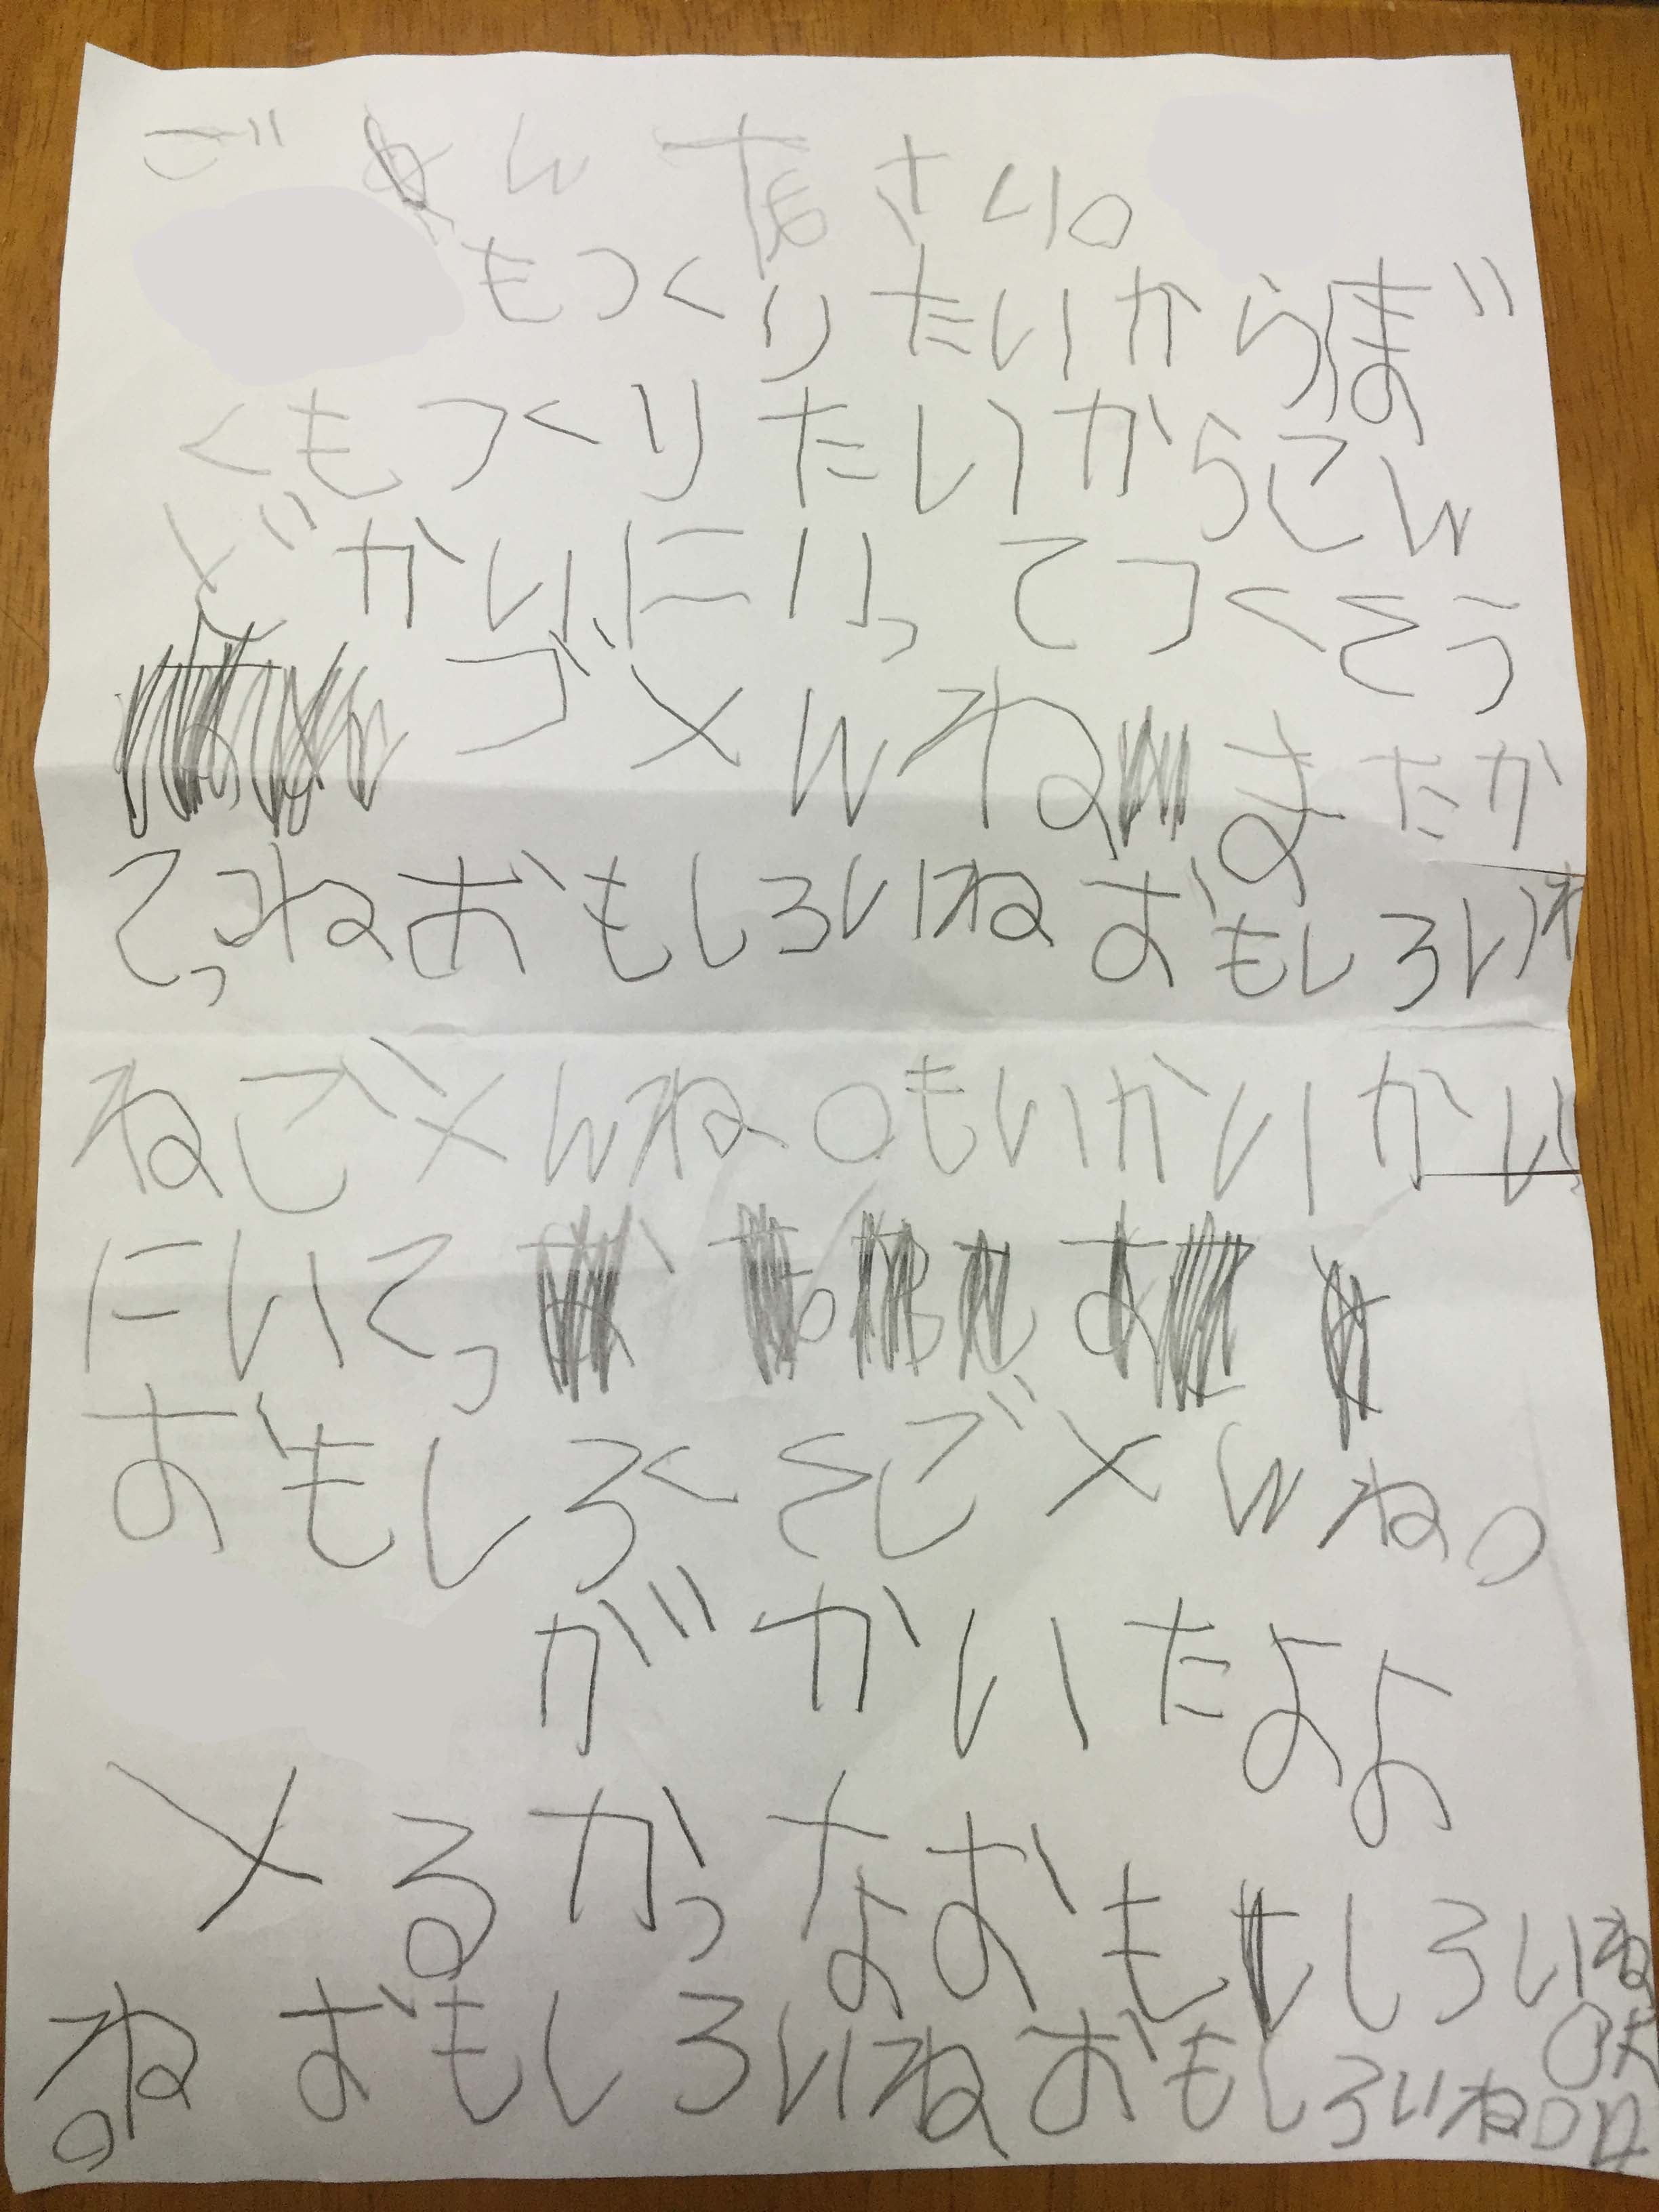 ごめんなさい。
もつくりたいからぼ
くもつくりたいからこん
どかいにいってつくそう
ゴメんねまたか
てっねおもしろいねおもしろいね
ねごメんね。もいかいかい
にいてっ
おもしろくさごメんね。
がかいたよよ
メるかっなおもしろいね
ねおもしろいねおもしろいね
。